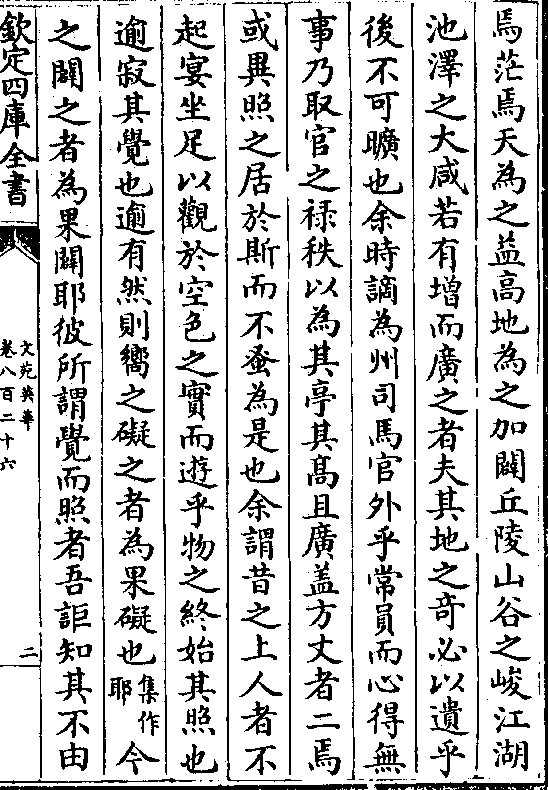 焉茫焉天為之益高地為之加闢丘陵山谷之峻江湖
池澤之大咸若有增而廣之者夫其地之竒必以遺乎
後不可曠也余時謫為州司馬官外乎常員而心得無
事乃取官之禄秩以為其亭其髙且廣盖方丈者二焉
或異照之居於斯而不蚤為是也余謂昔之上人者不
起宴坐足以觀於空色之實而遊乎物之終始其照也
逾寂其覺也逾有然則嚮之礙之者為果礙也集作耶今
之闢之者為果闢耶彼所謂覺而照者吾詎知其不由
欽定四庫全書
文苑英華
卷八百二十六
二